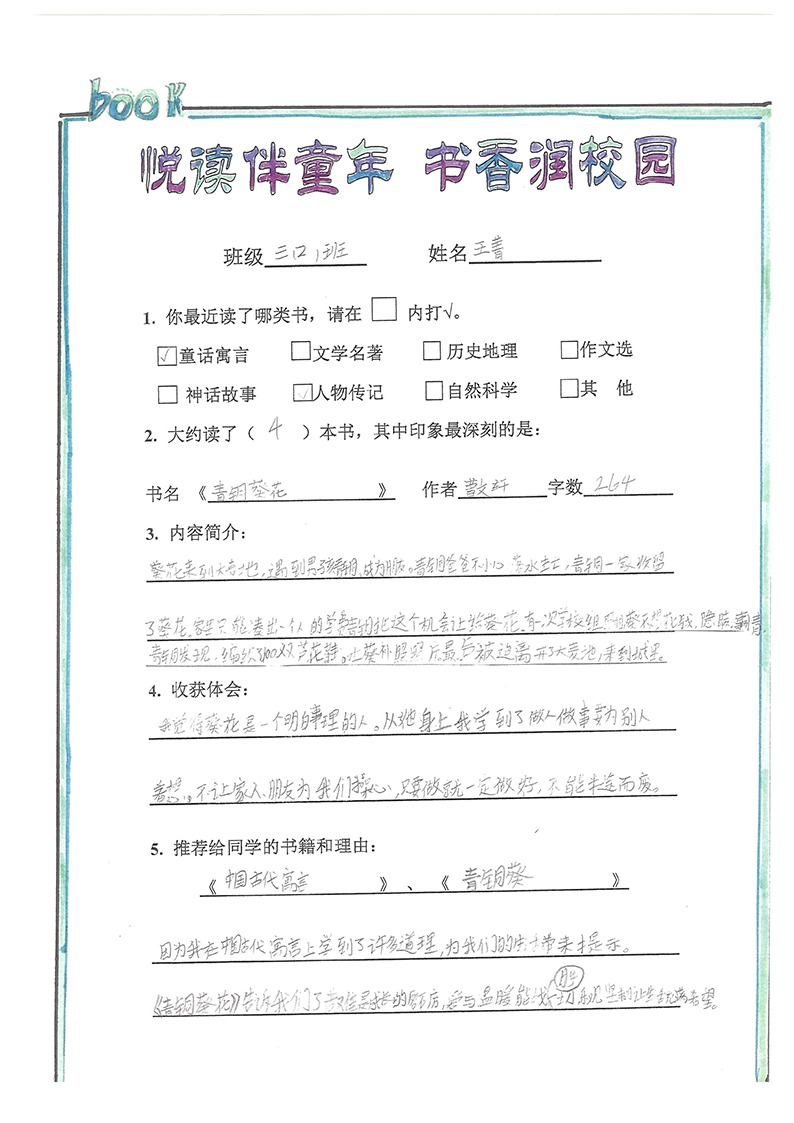 book
悦读伴童年 书香润校园
班级 三口1班 姓名 王菁
1. 你最近读了哪类书，请在 □ 内打√。
☑童话寓言 □文学名著 □ 历史地理 □作文选
□ 神话故事 ☑人物传记 □自然科学 □其 他
2. 大约读了（ 4 ）本书，其中印象最深刻的是：
书名 《青铜葵花》 作者 曹文轩 字数 264
3. 内容简介：
葵花来到大麦地，遇到男孩青铜，成为朋友。青铜爸爸不小心落水去亡，青铜一家收留
了葵花，家里只能凑出一个人的学费青铜把这个机会让给葵花，有一次学校组 葵不想花钱，隐瞒
青铜发现，编织了100双芦花鞋。让葵补照照片最后被迫离开大麦地，来到城里。
4. 收获体会：
我觉得葵花是一个明白事理的人。从她身上我学到了做人做事要为别人
着想。不让家人、朋友为我们操心，只要做就一定做好，不能半途而废。
5. 推荐给同学的书籍和理由：
《中国古代寓言》、《青铜葵》
因为我在中国古代寓言上学到了许多道理，为我们的生活带来提示。
《青铜葵花》告诉我们了苦难是成长的磨刀石，爱与温暖能 胜 希望。